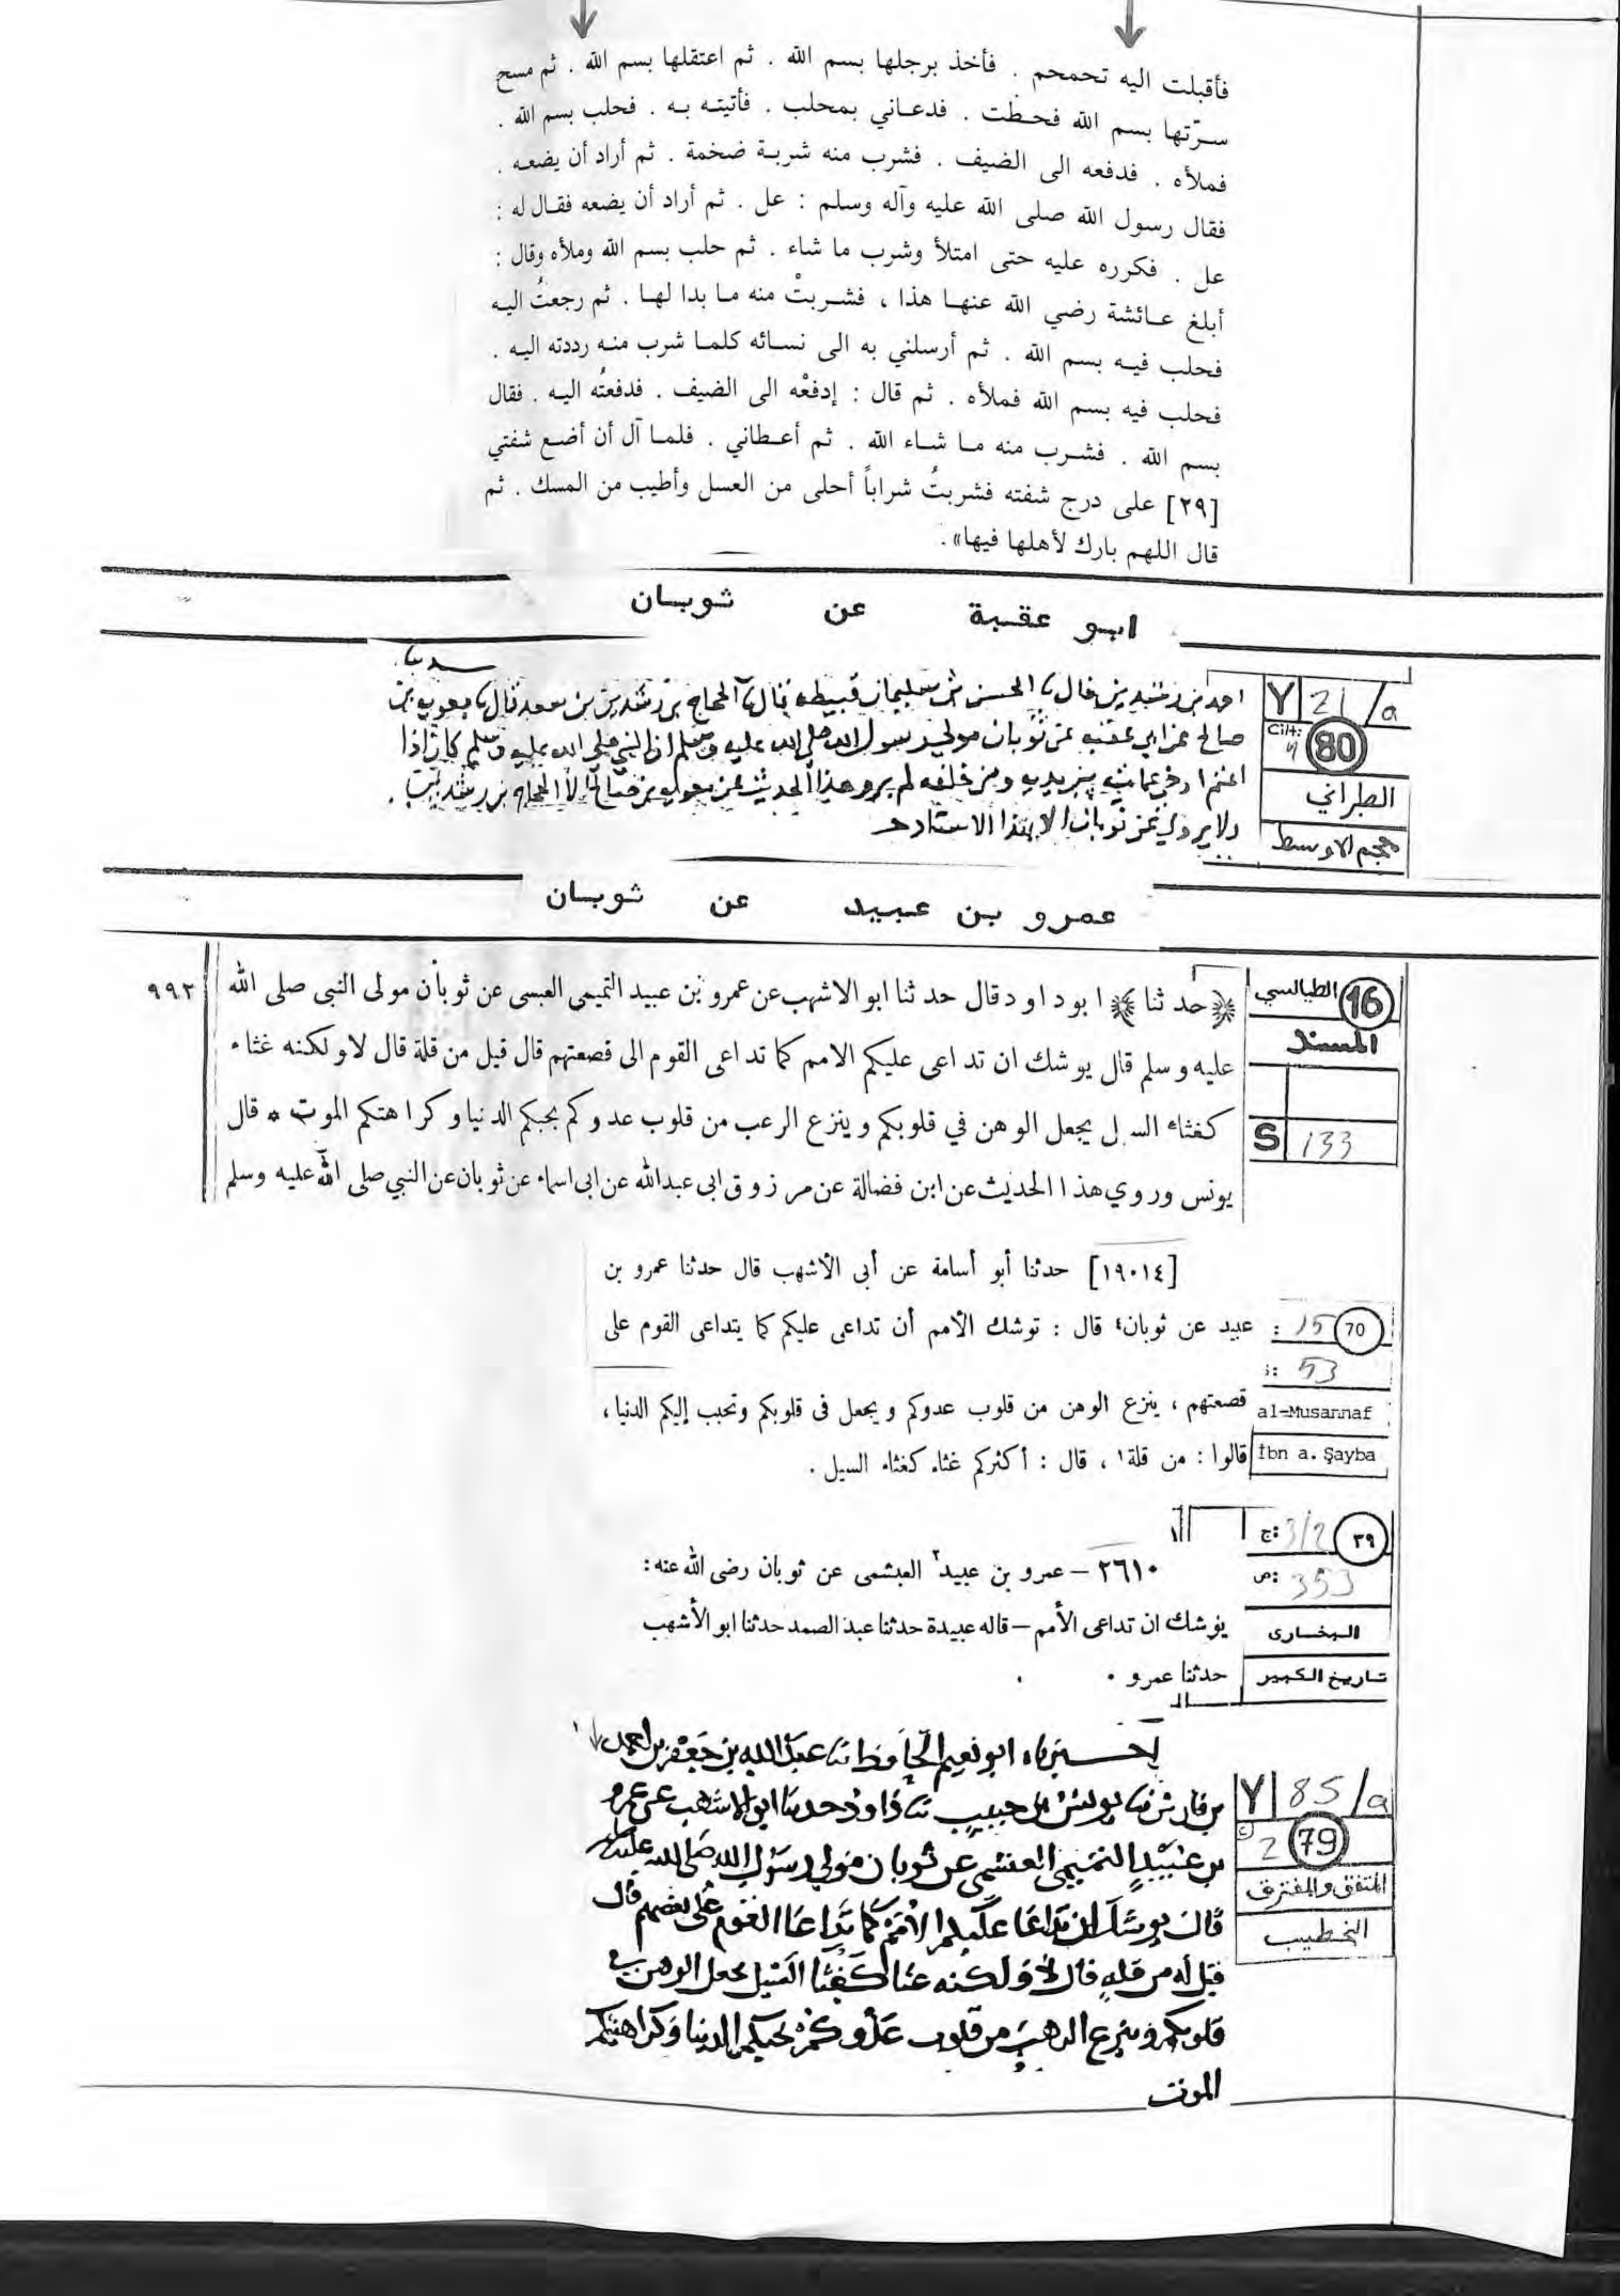 فأقبلت اليه تحمحم . فأخذ برجلها بسم الله . ثم اعتقلها بسم الله . ثم مسح
سرّتها بسم الله فحطت . فدعاني بمحلب . فأتيته به . فحلب بسم الله .
فملأه . فدفعه الى الضيف . فشرب منه شربة ضخمة . ثم أراد أن يضعه .
فقال رسول الله صلى الله عليه وآله وسلم : عل . ثم أراد أن يضعه فقال له :
عل . فكرره عليه حتى امتلأ وشرب ما شاء . ثم حلب بسم الله وملأه وقال :
أبلغ عائشة رضي الله عنها هذا ، فشربتْ منه ما بدا لها . ثم رجعتُ اليه
فحلب فيه بسم الله . ثم أرسلني به الى نسائه كلما شرب منه رددته اليه .
فحلب فيه بسم الله فملأه . ثم قال : إدفعْه الى الضيف . فدفعتُه اليه . فقال
بسم الله . فشرب منه ما شاء الله . ثم أعطاني . فلما آل أن أضع شفتي
[٢٩] على درج شفته فشربتُ شراباً أحلى من العسل وأطيب من المسك . ثم
قال اللهم بارك لأهلها فيها» .
ابو عقبة عن ثوبان
Y 21/a
Cilt: 80
الطبراني
معجم الاوسط
احمد بن رشدين قال الحسن بن سليمان قبيطه قال الحجاج بن رشدين بن سعد قال
صالح عن ابي عقبه عن ثوبان مولى رسول الله صلى الله عليه وسلم ان النبي صلى الله عليه وسلم كان اذا
لم يرو هذا الحديث عن يعقوب بن صالح الا الحجاج بن رشدين
ولا يروى عن ثوبان الا بهذا الاسناد
عمرو بن عبيد عن ثوبان
16 الطيالسي
المسند
S 133
٩٩٢
﴿حد ثنا﴾ ابو داود قال حد ثنا ابو الاشهب عن عمرو بن عبيد التميمى العبسى عن ثوبان مولى النبى صلى الله
عليه وسلم قال يوشك ان تداعى عليكم الامم كما تداعى القوم الى قصعتهم قال قيل من قلة قال لا ولكنه غثاء
كغثاء السيل يجعل الوهن في قلوبكم وينزع الرعب من قلوب عدوكم بحبكم الدنيا وكراهتكم الموت * قال
يونس وروي هذا الحديث عن ابن فضالة عن مرزوق ابى عبدالله عن ابى اسماء عن ثوبان عن النبي صلى الله عليه وسلم
[١٩٠١٤] حدثنا أبو أسامة عن أبى الأشهب قال حدثنا عمرو بن
عبيد عن ثوبان؛ قال : توشك الأمم أن تداعى عليكم كما يتداعى القوم على
قصعتهم ، ينزع الوهن من قلوب عدوكم ويجعل فى قلوبكم وتحبب إليكم الدنيا ،
قالوا : من قلة؟ ، قال : أكثركم غثاء كغثاء السيل .
70 15 :
: 53
al-Musannaf
İbn a. Şayba
٣٩ ج: 3/2
ص: 353
البخارى
تاريخ الكبير
٢٦١٠ – عمرو بن عبيد٢ العبشمى عن ثوبان رضى الله عنه :
يوشك ان تداعى الأمم – قاله عبيدة حدثنا عبد الصمد حدثنا ابو الأشهب
حدثنا عمرو .
Y 85/a
C 2 79
المتفق والمفترق
الخطيب
اخبرنا ابو نعيم الحافظ نا عبد الله بن جعفر بن احمد
بن فارس نا يونس بن حبيب نا داود حدثنا ابو الاشهب عن عمرو
بن عبيد التميمي العبشمي عن ثوبان مولى رسول الله صلى الله عليه
قال يوشك ان تداعا عليكم الامم كما تداعا القوم على قصعتهم قال
قيل له من قله قال لا ولكنه غثا كغثا السيل يجعل الوهن في
قلوبكم وينزع الرهب من قلوب عدوكم بحبكم الدنيا وكراهيتكم
الموت